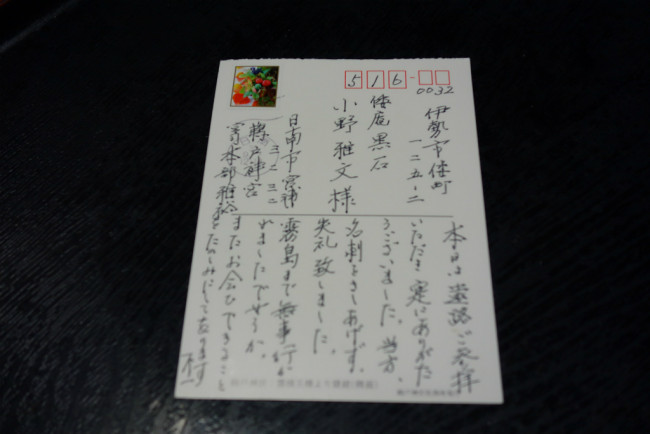 516-
0032
伊勢市倭町
一二五-二
倭庵黒石
小野雅文様
日南市宮浦
三二三二
鵜戸神宮
本部雅裕
本日は遠路ご参拝
いただき実にありがた
うございました。当方、
名刺をさしあげず、
失礼致しました。
霧島まで無事行か
れましたでせうか。
またお会ひできること
をたのしみにしております